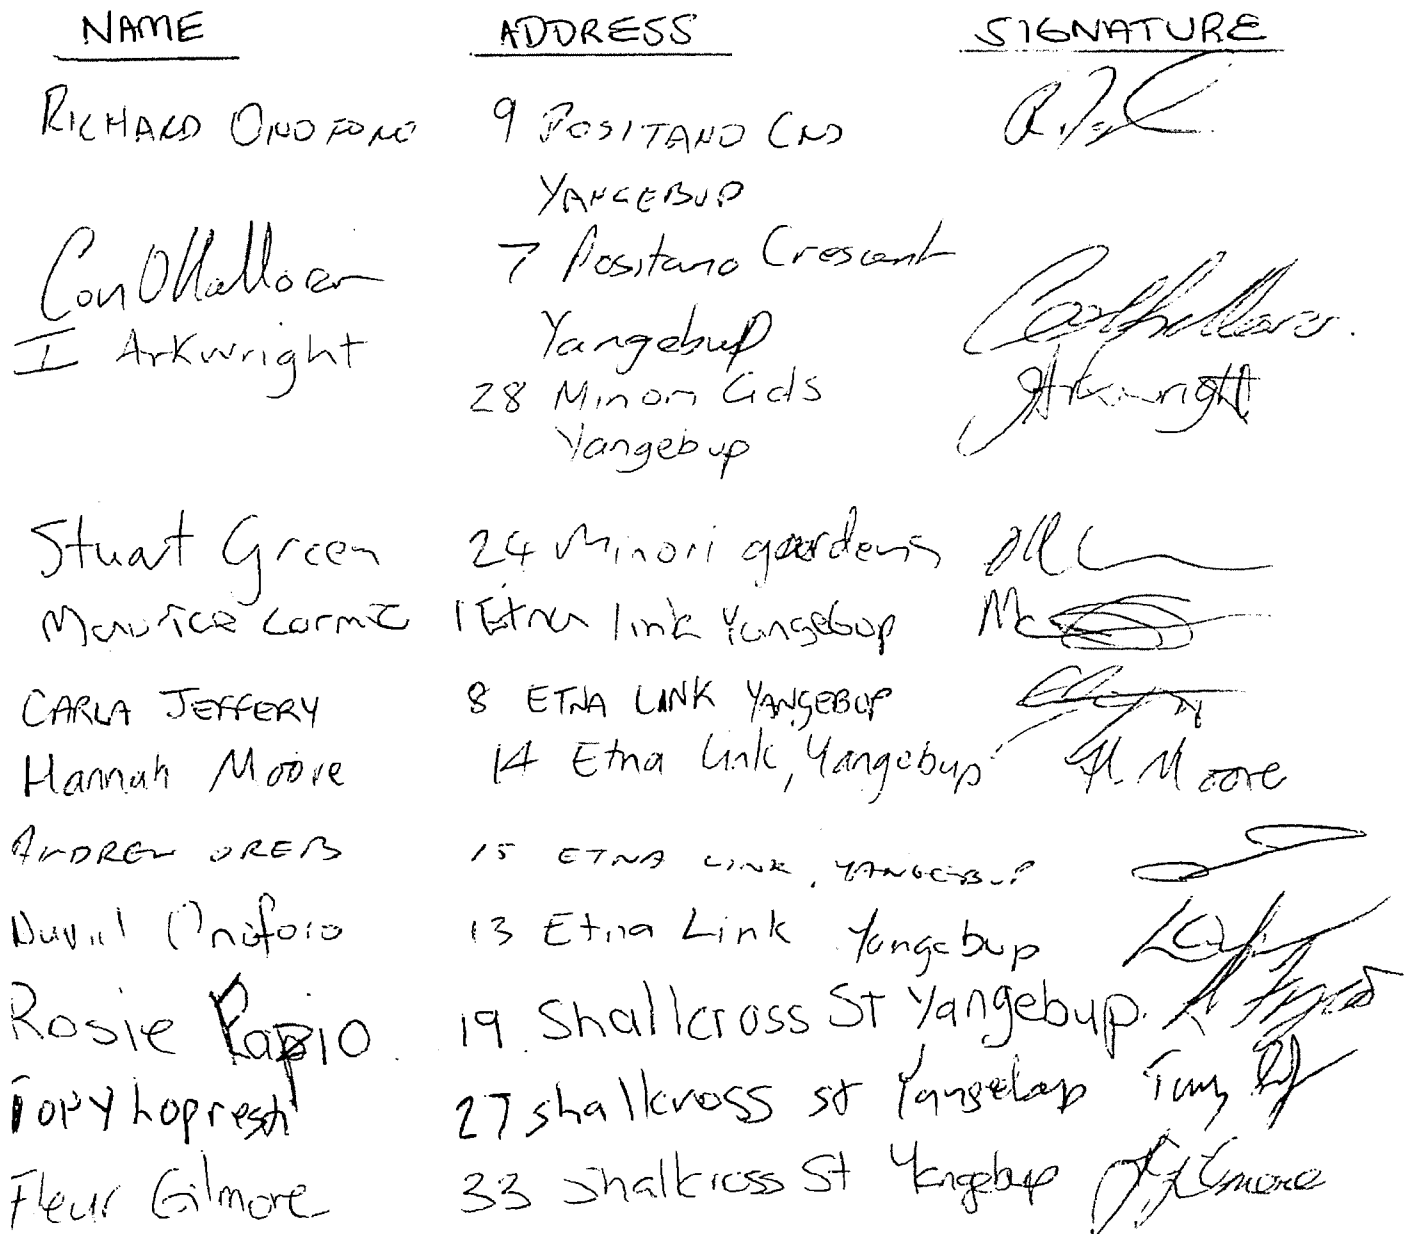 NAME ADDRESS SIGNATURE
RICHARD ONOFORO 9 POSITANO CRS
YANGEBUP
Con OHalloran 7 Positano Crescent
I Arkwright Yangebup
28 Minori Gds Arkwright
Yangebup
Stuart Green 24 Minori gardens
Maurice Cormie 1 Etna link Yangebup
CARLA JEFFERY 8 ETNA LINK YANGEBUP
Hannah Moore 14 Etna Link, Yangebup H. Moore
ANDREW OREB 15 ETNA LINK, YANGEBUP
David Onoforo 13 Etna Link Yangebup
Rosie 19 Shallcross St Yangebup.
Lopresti 27 shallcross st Yangebup Tony
Fleur Gilmore 33 Shallcross St Yangebup Gilmore